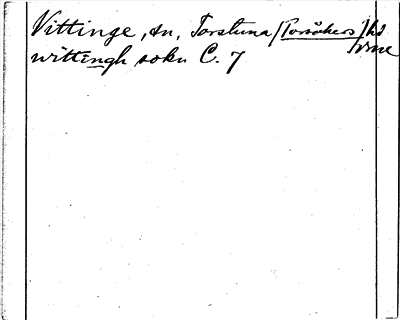 Vittinge, sn, Torstuna (Torsåkers) hd
wittengh sokn C. 7